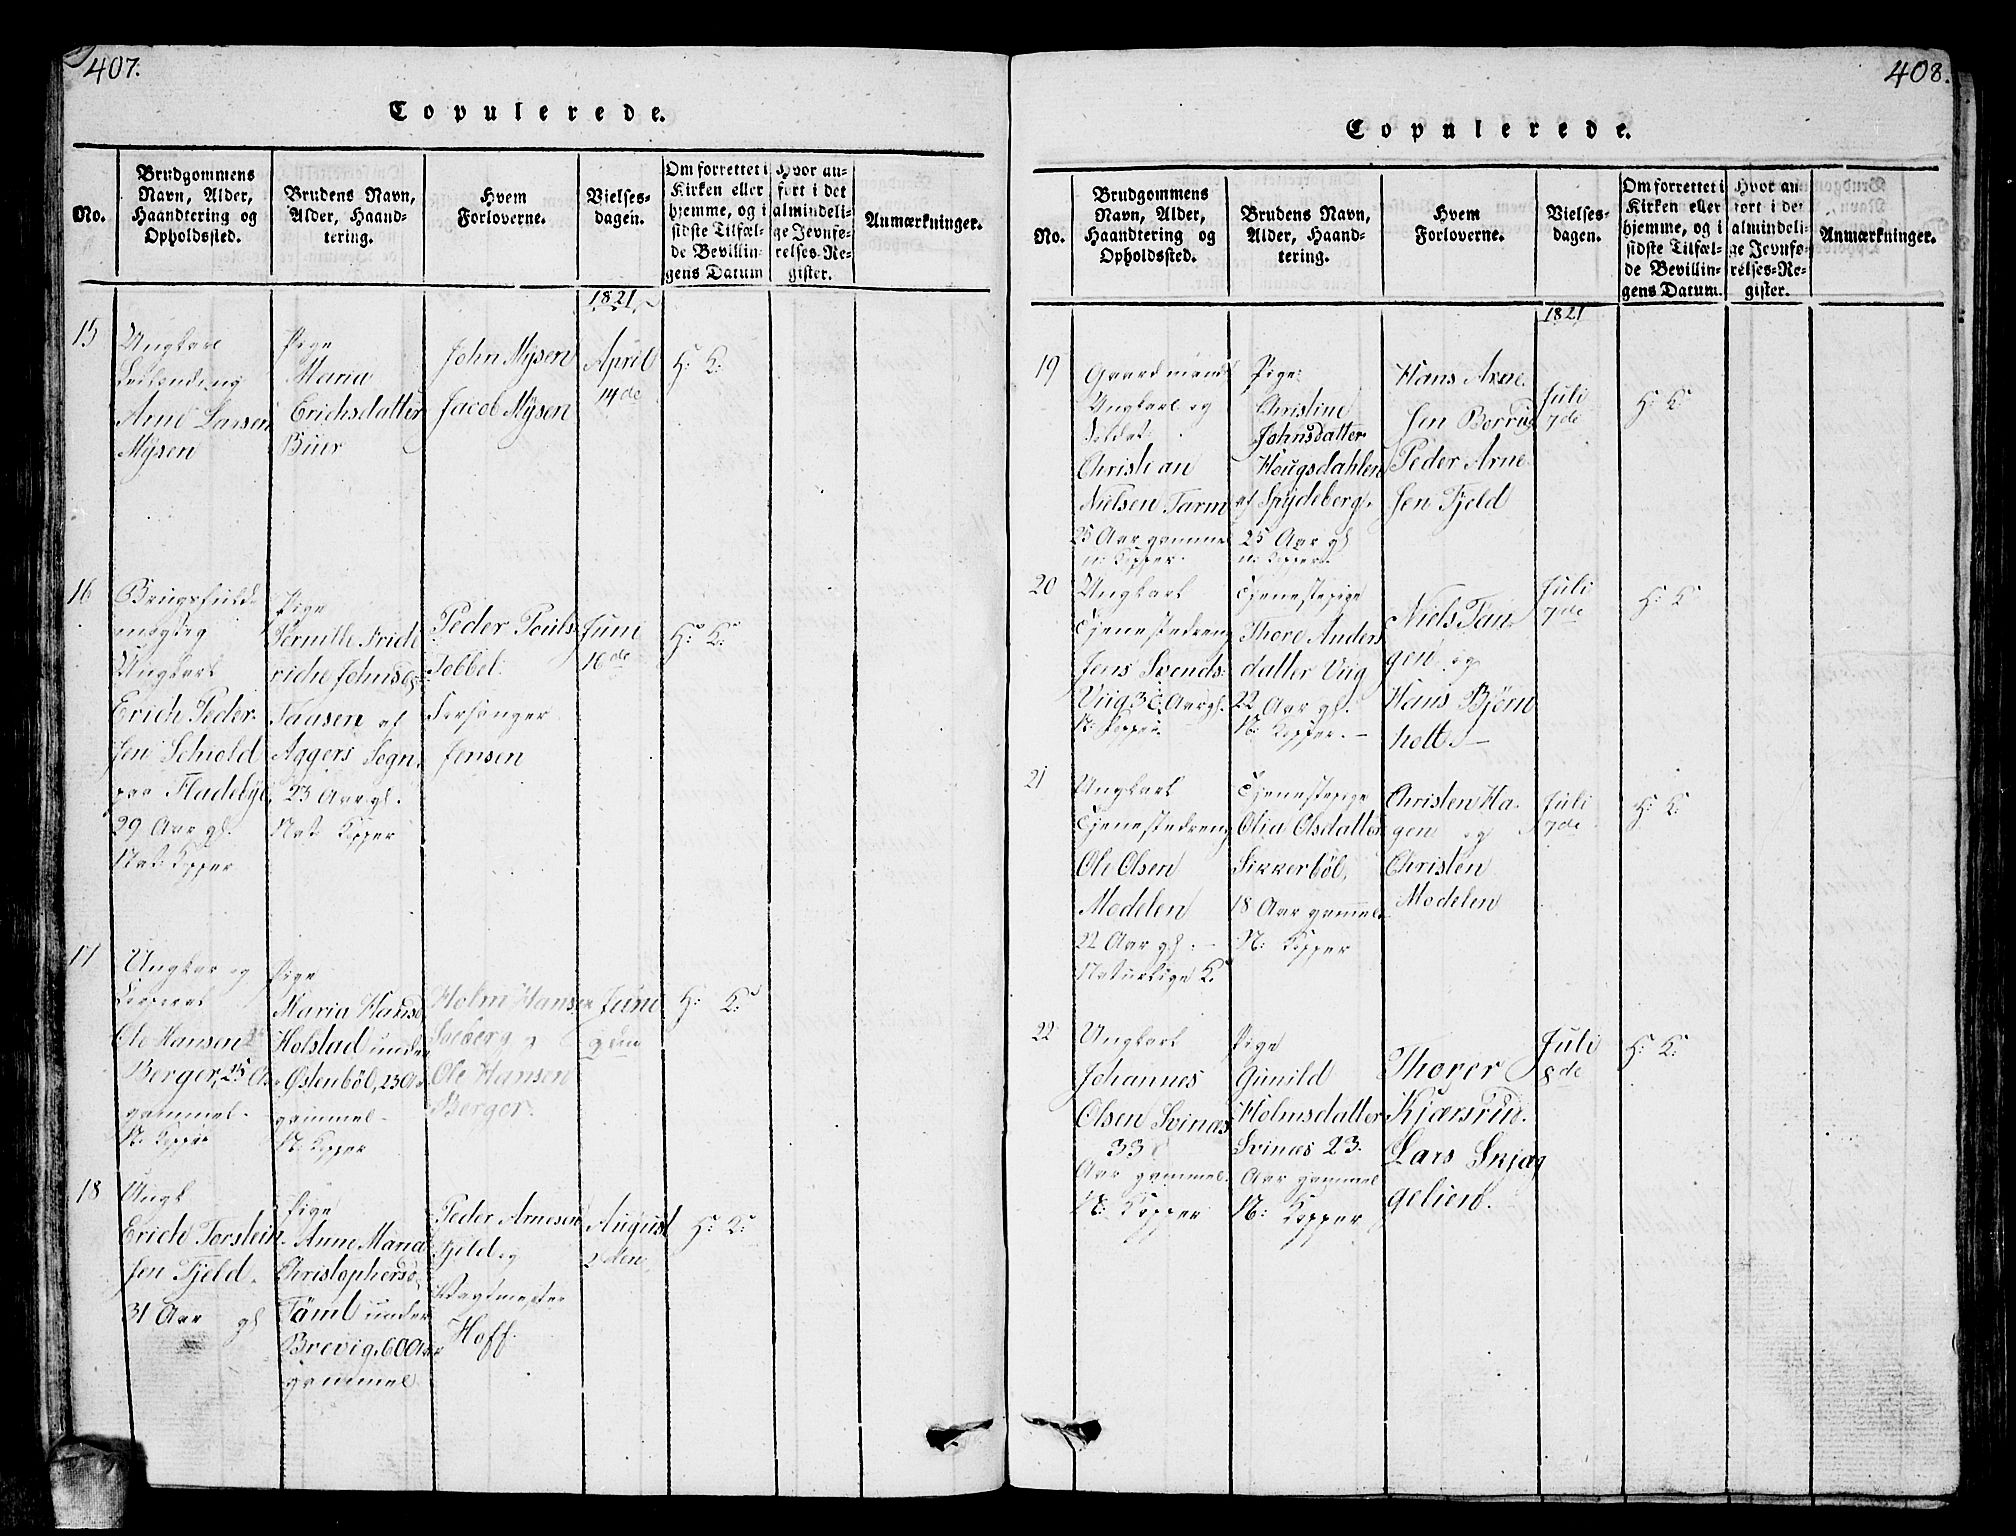 407.
Copulerede.
No.
Brudgommens
Navn, Alder,
Haandtering og
Opholdssted.
Brudens Navn,
Alder, Haand-
tering.
Hvem
Forloverne.
Vielses-
dagen.
Om forrettet i
Kirken eller
hjemme, og i
sidste Tilfæl-
de Bevillin-
gens Datum
Hvor an-
ført i det
almindeli-
ge Jevnfø-
relses-Re-
gister.
Anmærkninger.
1821
15
Ungkarl
Leilending
Arne Larsen
Mÿsen
Pige
Maria
Erichsdatter
Buer
John Mÿsen
Jacob Mÿsen
April
14de
H: K:
16
Brugsfuld-
mægtig
Ungkarl
Erich Peder-
sen Schiold
paa Fladebÿe
29 Aar gl.
Nat: Kopper
Pige
Fride
riche Johns
Faasen af
Aggers Sogn,
23 Aar gl.
Nat Kopper
Peder Pouls-
Tobbel
Jensen
Juni
16de
H: K:
17
Ungkar og
Ole Hansen
Berger, 25 Aar
gammel.
N: Kopper
Pige
Maria Hansd
Holstad under
Østenbøl, 23 A
gammel
N: Kopper
Holm Hansen
Soeberg og
Ole Hansen
Berger.
Juni
9den
H: K:
18
Ungk
Erich Torstein-
sen Fjeld.
31 Aar gl
Pige
Anne Maria
Christophersd
Tömt under
Brevig, 60 Aar
gammel
Peder Arnesen
Fjeld og
Vagtmester
Hoff.
August
2den
H: K:
408.
Copulerede.
No.
Brudgommens
Navn, Alder,
Haandtering og
Opholdssted.
Brudens Navn,
Alder, Haand-
tering.
Hvem
Forloverne.
Vielses-
dagen.
Om forrettet i
Kirken eller
hjemme, og i
sidste Tilfæl-
de Bevillin-
gens Datum.
Hvor an-
ført i det
almindeli-
ge Jevnfø-
relses-Re-
gister.
Anmærkninger.
1821
19
Gaardmands
Ungkarl og
Soldat
Christian
Nielsen Tarm
25 Aar gammel
n: Kopper.
Pige
Christine
Johnsdatter
Hougsdahlen
af Spÿdeberg.
25 Aar gl
n: Kopper
Hans Arne-
sen Berrug
Peder Arne-
sen Fjeld
Juli
7de
H: K:
20
Ungkarl
Tjenestedreng
Jens Svends:
Viig 30 Aar gl.
N: Kopper
Tjenestepige
Thore Anders
datter Viig
22 Aar gl.
N: Kopper.
Niels Tan-
gen og
Hans Bjørn
holt.
Juli
7de
H: K
21
Ungkarl
Tjenestedreng
Ole Olsen
Modelen
22 Aar gl.
Naturlige K.
Tjenestepige
Olia Olsdatter
Sikkerböl,
18 Aar gammel
N: Kopper
Christen Ha-
gen og
Christen
Modelen
Juli
7de
H: K:
22
Ungkarl
Johannes
Olsen Svinæs
33
Aar gammel.
N: Kopper
Pige
Gunild
Holmsdatter
Svinæs 23.
Aar gammel
N: Kopper
Thorer
Kjærsrud.
Lars
gelien.
Juli
8de
H: K: